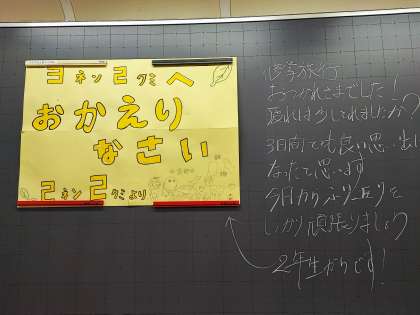 3ネン2クミへ
おかえり
なさい
2ネン2クミより
修学旅行
おつかれさまでした!
疲れは少しとれましたか?
3日間でも良い思い出に
なったと思います
今日からふり返りを
しっかり頑張りましょう
2年生からです!